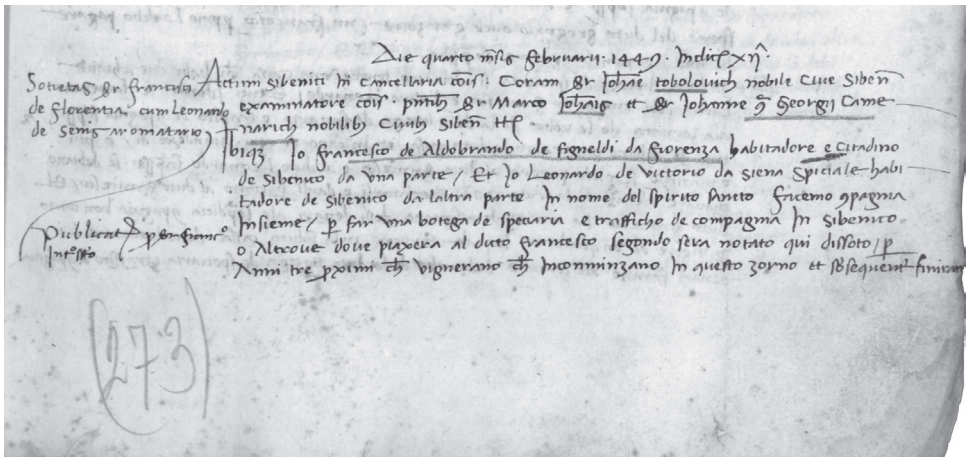 Die quarto mẽsis februarii · 1449 · Indictẽ XIJ^
Sotietas ẽr Francisci
de Florentia cum Leonardo
de Senis aromatario
Actum Sibenici In Cancellaria cõis · Coram ẽr Iohãẽ tobolovich nobile Cive Sibeñ
examinatore cõis · pñtibz ẽr Marco Iohãis et ẽr Iohanne q̃ Georgii Came
narich nobilibz Civibz Sibeñ
Ibiqz Io francesco de Aldobrando de figneldi da fiorenza habitadore e Citadino
de Sibenico da una parte / Et Io Leonardo de victorio da siena Spiciale habi
tadore de Sibenico da laltra parte In nome del spirito sancto facemo ꝯpagnia
Insieme / ꝑ far una botega de specaria e traffico de compagnia In Sibenico
o Altrove dove piaxera al dicto francesco segondo sera notato qui dissoto / ꝑ
Anni tre ꝓximi che vignerano che Incominzano In questo zorno et
Publicat
(273)